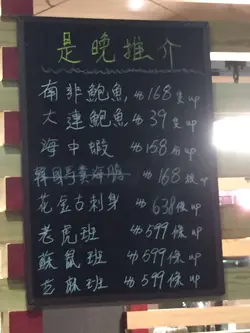 是晚推介
南非鮑魚 $168隻up
大連鮑魚 $39隻up
海中蝦 $158份up
$168 up
花金古刺身 $638條up
老虎班 $599條up
蘇鼠班 $599條up
芝麻班 $599條up